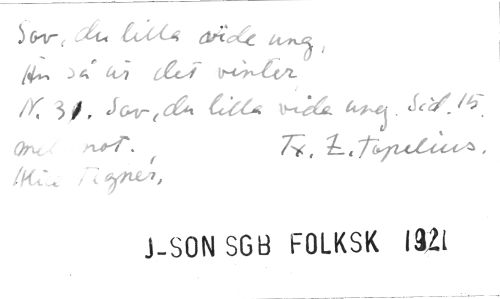 Sov, du lilla vide ung,
Än så är det vinter
N. 31. Sov, du lilla vide ung. Sid. 15.
med not. Tx. Z. Topelius.
Alice Tegnér.
J-SON SGB FOLKSK 1921